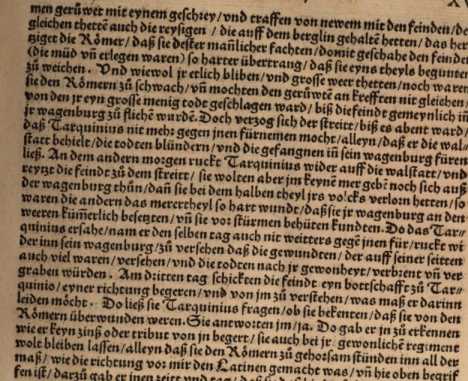 men gerůwet mit eynem geschrey/vnd traffen von newem mit den feinden/de
gleichen thettē auch die reysigen / die auff dem berglin gehaltē hetten / das her
ziget die Römer/daß sie dester mañlicher fachten/domit geschahe den feinden
(die můd vñ erlegen waren) so harter übertrang/daß sie eyns theyls begunten
zů weichen. Vnd wiewol jr etlich bliben/vnd grosse weer thetten/noch waren
sie den Römern zů schwach/vñ mochten den gerůwtē an krefften nit gleichen
von den jr eyn grosse menig todt geschlagen ward/ biß die feindt gemeynlich in
jr wagenburg zů fliehē wurdē. Doch verzog sich der streitt/biß es abent ward/
daß Tarquinius nit mehr gegen jnen fürnemen mocht/alleyn/daß er die wal-
statt behielt/die todten blündern/vnd die gefangnen iñ sein wagenburg fůren
ließ. An dem andern morgen ruckt Tarquinius wider auff die walstatt/vnd
reytzt die feindt zů dem streitt/ sie wolten aber jm keynē mer gebē noch sich auß
der wagenburg thůn/dañ sie bei dem halben theyl jrs volcks verlorn hetten/so
waren die andern das merertheyl so hart wundt/daß sie jr wagenburg an den
weeren kümerlich besetzten/vñ sie vor stürmen behůten kundten. Do das Tar-
quinius ersahe/nam er den selben tag auch nit weitters gegē jnen für/ruckt wi
der inn sein wagenburg/zů versehen daß die gewundten/der auff seiner seitten
auch viel waren/versehen/vnd die todten nach jr gewonheyt/verbrent vñ ver
graben würden. Am dritten tag schickten die feindt eyn bottschafft zů Tar-
quinio/eyner richtung begeren/vnd von jm zů verstehen/was maß er darinn
leiden möcht. Do ließ sie Tarquinius fragen/ob sie bekenten/daß sie von den
Römern überwunden weren. Sie antworten jm/ja. Do gab er jn zů erkennen
wie er keyn zinß oder tribut von jn begert/sie auch bei jr gewonlichē regiment
wolt bleiben lassen/alleyn daß sie den Römern zů gehorsam stünden inn all der
maß/wie die richtung vor mir den Latinen gemacht was/vñ hie oben begrif
fen ist/darzů gab er jnen zeitt vnd